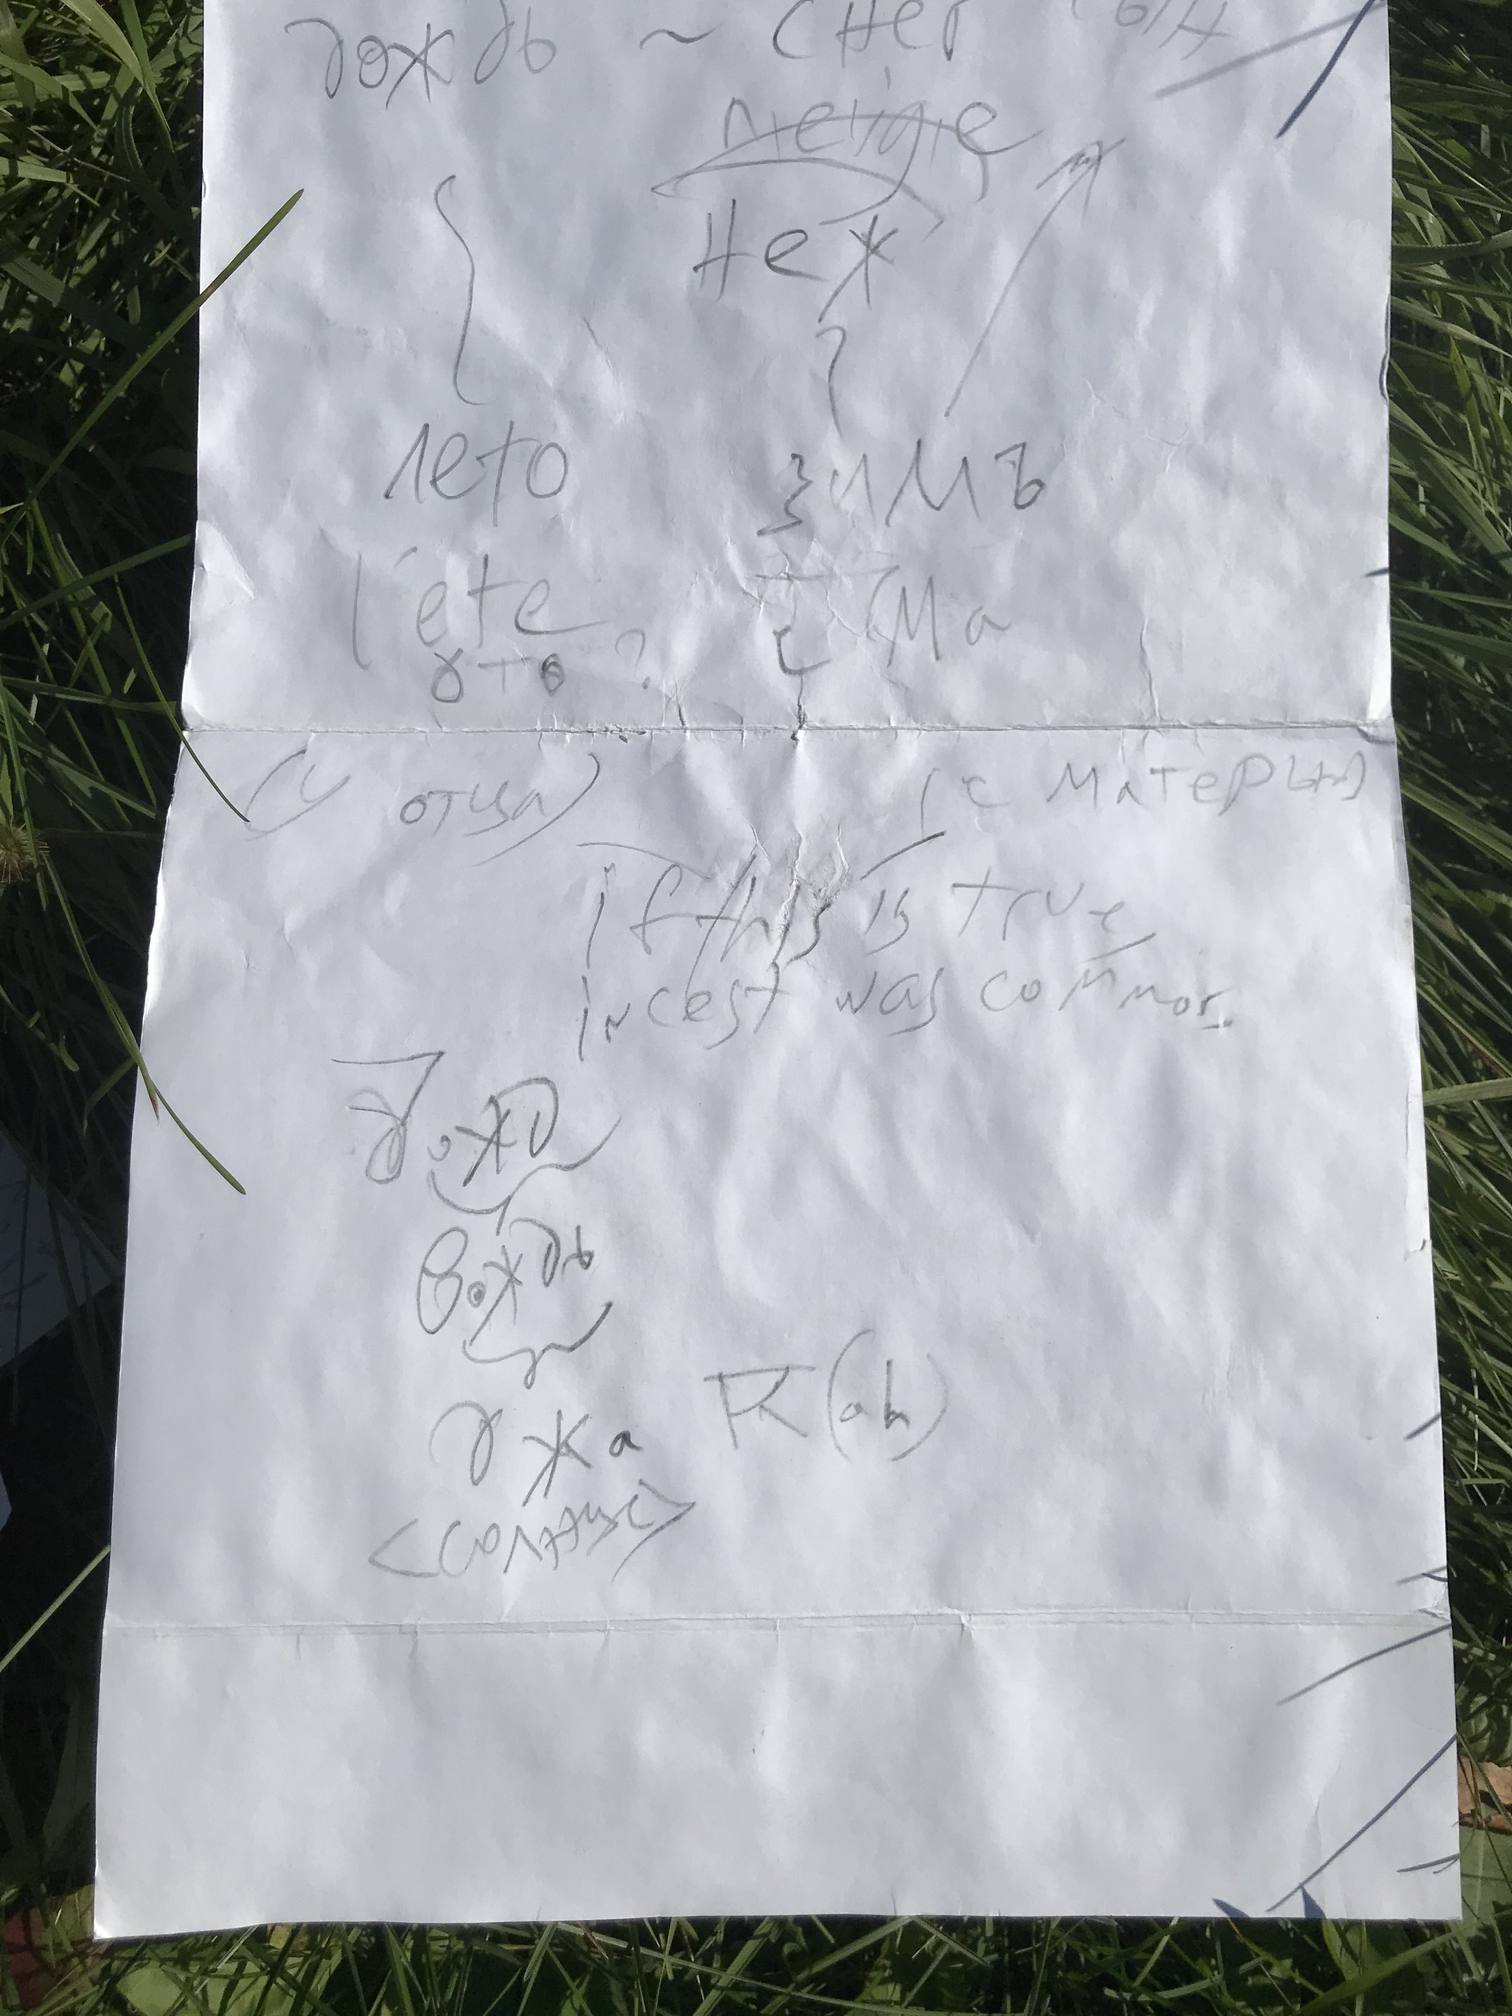 дождь ~ снег
neige
неж
лето зимъ
l'éte ? с има
ото
(у отца) (с матерью)
if this is true,
incest was common.
дожд
вождь
джа R(ah)
<солнце>